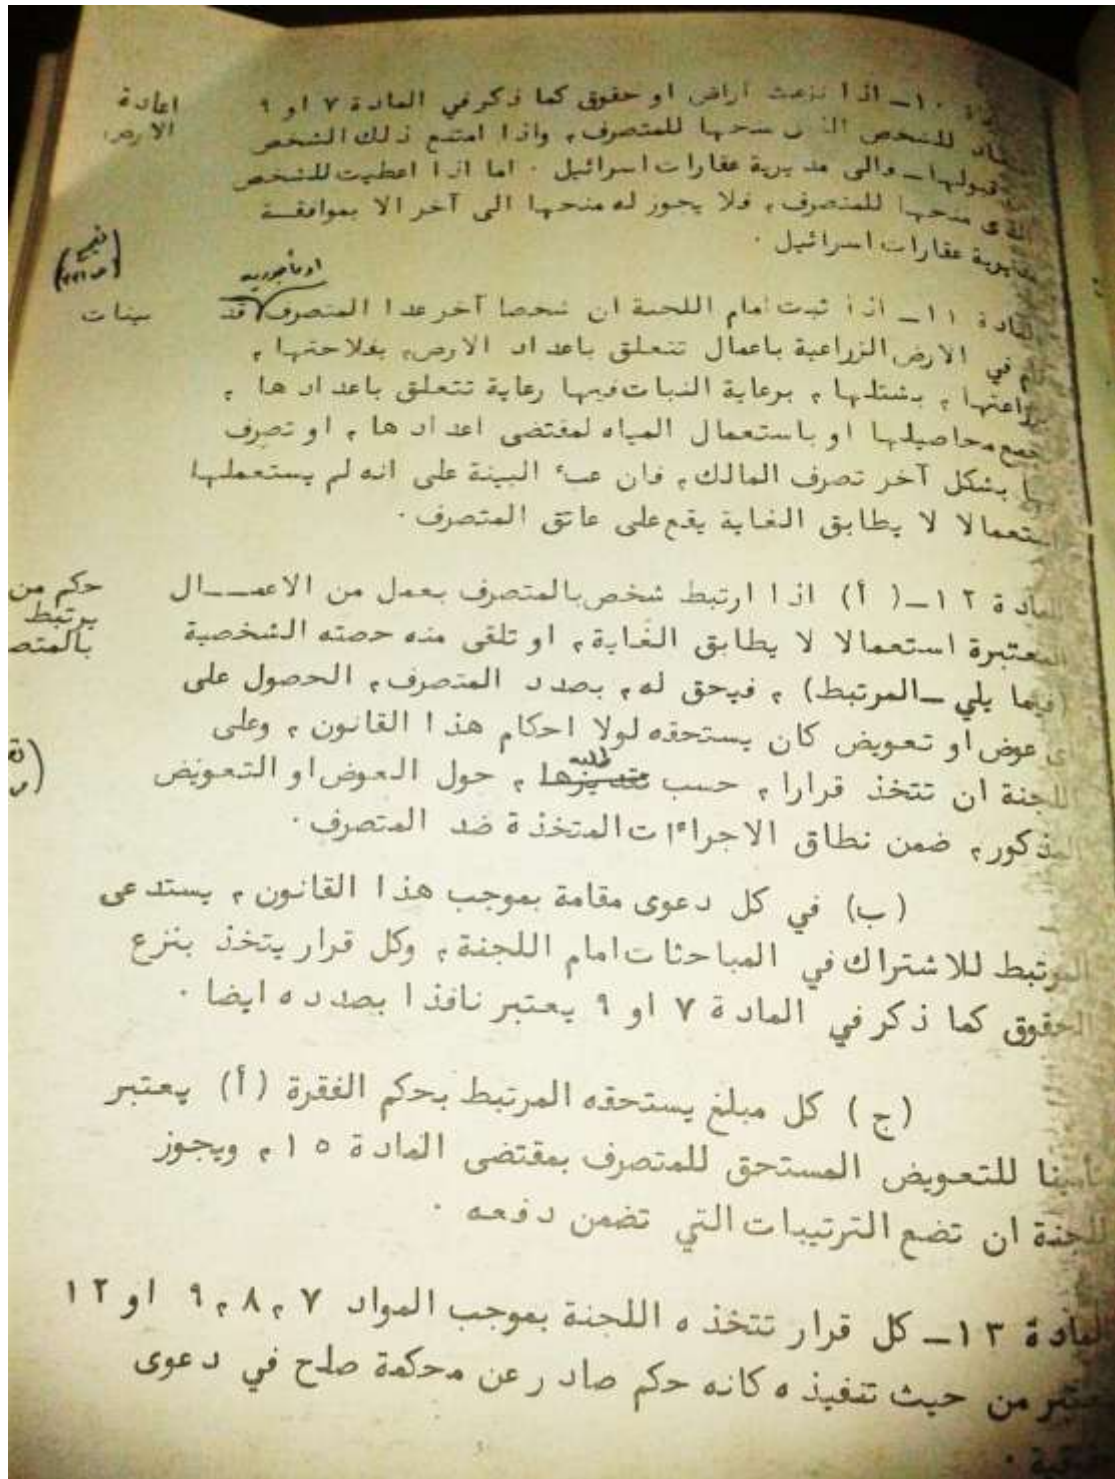 ١٠ــ اذا نزعت اراض او حقوق كما ذكر في المادة ٧ او ٩
اعادة
للشخص الذى منحها للمتصرف، واذا امتنع ذلك الشخص
الارض
قبولها ــ والى مديرية عقارات اسرائيل ٠ اما اذا اعطيت للشخص
منحها للمتصرف، فلا يجوز له منحها الى آخر الا بموافقــة
مديرية عقارات اسرائيل ٠
المادة ١١ــ اذا ثبت امام اللجنة ان شخصا آخر عدا المتصرف قد
بينات
في الارض الزراعية باعمال تتعلق باعداد الارض، بفلاحتها،
زراعتها، بشتلها، برعاية النبات فيها رعاية تتعلق باعدادها،
محاصيلها او باستعمال المياه لمقتضى اعدادها، او تصرف
بشكل آخر تصرف المالك، فان عبء البينة على انه لم يستعملها
استعمالا لا يطابق الغاية يقع على عاتق المتصرف٠
المادة ١٢ــ (أ) اذا ارتبط شخص بالمتصرف بعمل من الاعمــــال
حكم من
المعتبرة استعمالا لا يطابق الغاية، او تلقى منه حصته الشخصية
يرتبط
(فيما يلي ــ المرتبط) ، فيحق له، بصدد المتصرف، الحصول على
عوض او تعويض كان يستحقه لولا احكام هذا القانون، وعلى
اللجنة ان تتخذ قرارا، حسب طلبه، حول العوض او التعويض
المذكور، ضمن نطاق الاجراءات المتخذة ضد المتصرف٠
(ب) في كل دعوى مقامة بموجب هذا القانون، يستدعى
المرتبط للاشتراك في المباحثات امام اللجنة، وكل قرار يتخذ بنزع
الحقوق كما ذكر في المادة ٧ او ٩ يعتبر نافذا بصدده ايضا ٠
(ج) كل مبلغ يستحقه المرتبط بحكم الفقرة (أ) يعتبر
تأمينا للتعويض المستحق للمتصرف بمقتضى المادة ١٥، ويجوز
للجنة ان تضع الترتيبات التي تضمن دفعه ٠
المادة ١٣ــ كل قرار تتخذه اللجنة بموجب المواد ٧، ٨، ٩ او ١٢
يعتبر من حيث تنفيذه كانه حكم صادر عن محكمة صلح في دعوى